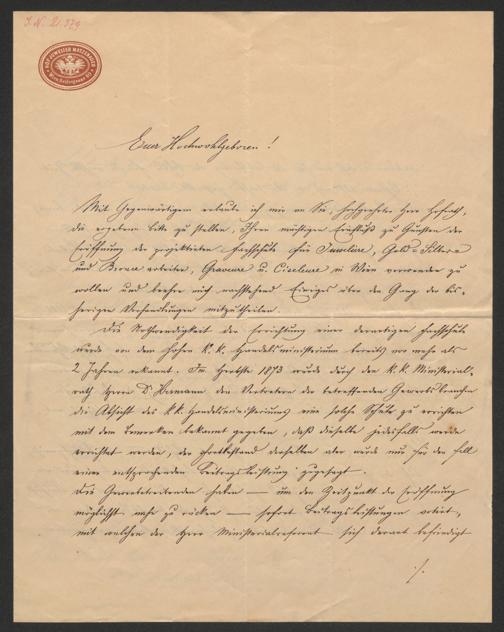 I. N. 21.379
HOF-JUWELIER
Euer Hochwohlgeboren!
Mit Gegenwärtigem erlaube ich mir an Sie, hochgeehrter Herr Hofrath,
die ergebene Bitte zu stellen, Ihren mächtigen Einfluß zu Gunsten der
Eröffnung der projektirten Fachschule für Juweliere, Gold- Silber-
und Bronce arbeiter, Graveure u. Ciseleure in Wien verwenden zu
wollen und beehre mich nachstehend Einiges über den Gang der bis-
herigen Verhandlungen mitzutheilen.
Die Nothwendigkeit der Errichtung einer derartigen Fachschule
wurde von dem hohen k. k. Handelsministerium bereits vor mehr als
2 Jahren erkannt. Im Herbste 1873 wurde durch den k. k. Ministerial-
rath Herrn D. Hermann den Vertretern der betreffenden Gewerbsbranchen
die Absicht des k. k. Handelsministeriums eine solche Schule zu errichten
mit dem Bemerken bekannt gegeben, daß dieselbe jedesfalls werde
errichtet werden, der Fortbestand derselben aber wurde nur für den Fall
einer entsprechenden Beitragsleistung zugesagt.
Die Gewerbetreibenden haben — um den Zeitpunkt der Eröffnung
möglichst nahe zu rücken — sofort Beitragsleistungen votirt,
mit welchen der Herr Ministerialreferent sich derart befriedigt
./.